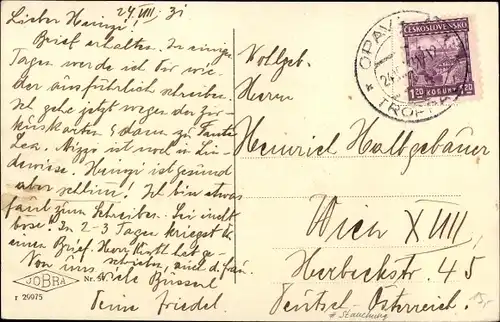 24.VIII. 31
Lieber Heinzi!
Brief erhalten. In einigen
Tagen werde ich Dir wie-
der ausführlich schreiben.
Ich gehe jetzt wegen der Zir-
kuskarten & dann zu Tante
Lea. Mizzi ist noch in Lin-
dewiese. Heinzi ist gesund
aber schlimm! Ich bin etwas
faul zum Schreiben. Sei nicht
böse. In 2-3 Tagen kriegst Du
einen Brief. Herr
Von uns
viele Bussal
Deine Friedel
JOBRA
Nr.
r 29975
Wohlgeb.
Herrn
Heinrich Halbgebauer
Wien XVIII,
Herbeckstr. 45
Deutsch-Österreich.
OPAVA
TROPPAU
ČESKOSLOVENSKO
1.20 KORUNY 1.20
* Stauchung
15,-